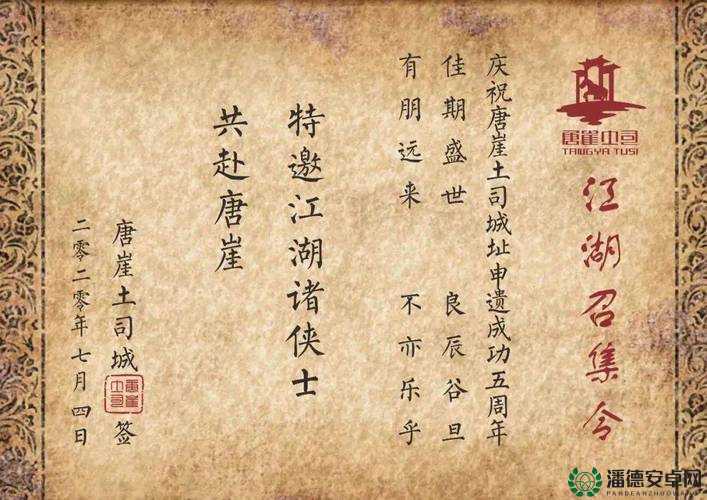 唐崖土司
TANGYA TUSI
江湖召集令
庆祝唐崖土司城址申遗成功五周年
佳期盛世 良辰谷旦
有朋远来 不亦乐乎
特邀江湖诸侠士
共赴唐崖
唐崖土司城 签
唐崖土司
二零二零年七月四日
潘德安卓网
PANDEANZHUOWANG